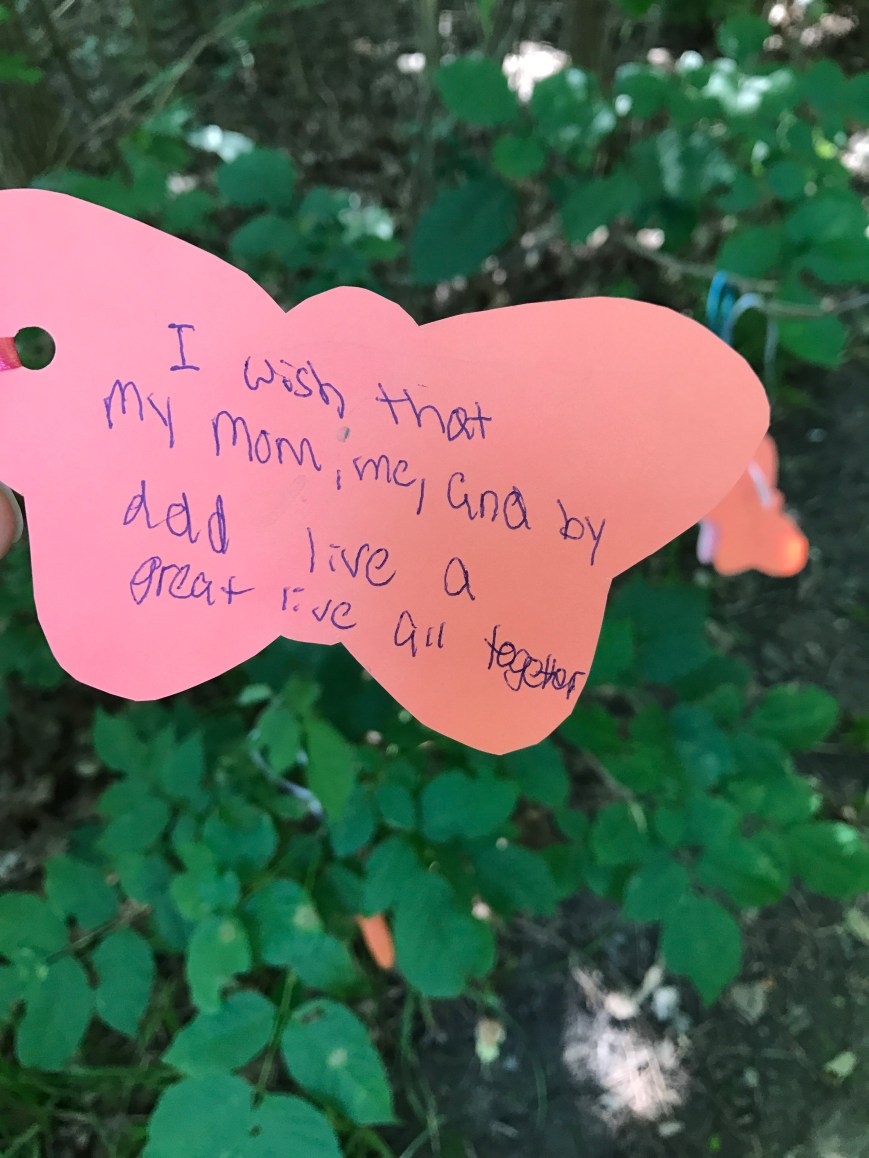 I wish that
my mom, me, and by
dad live a
great live all together